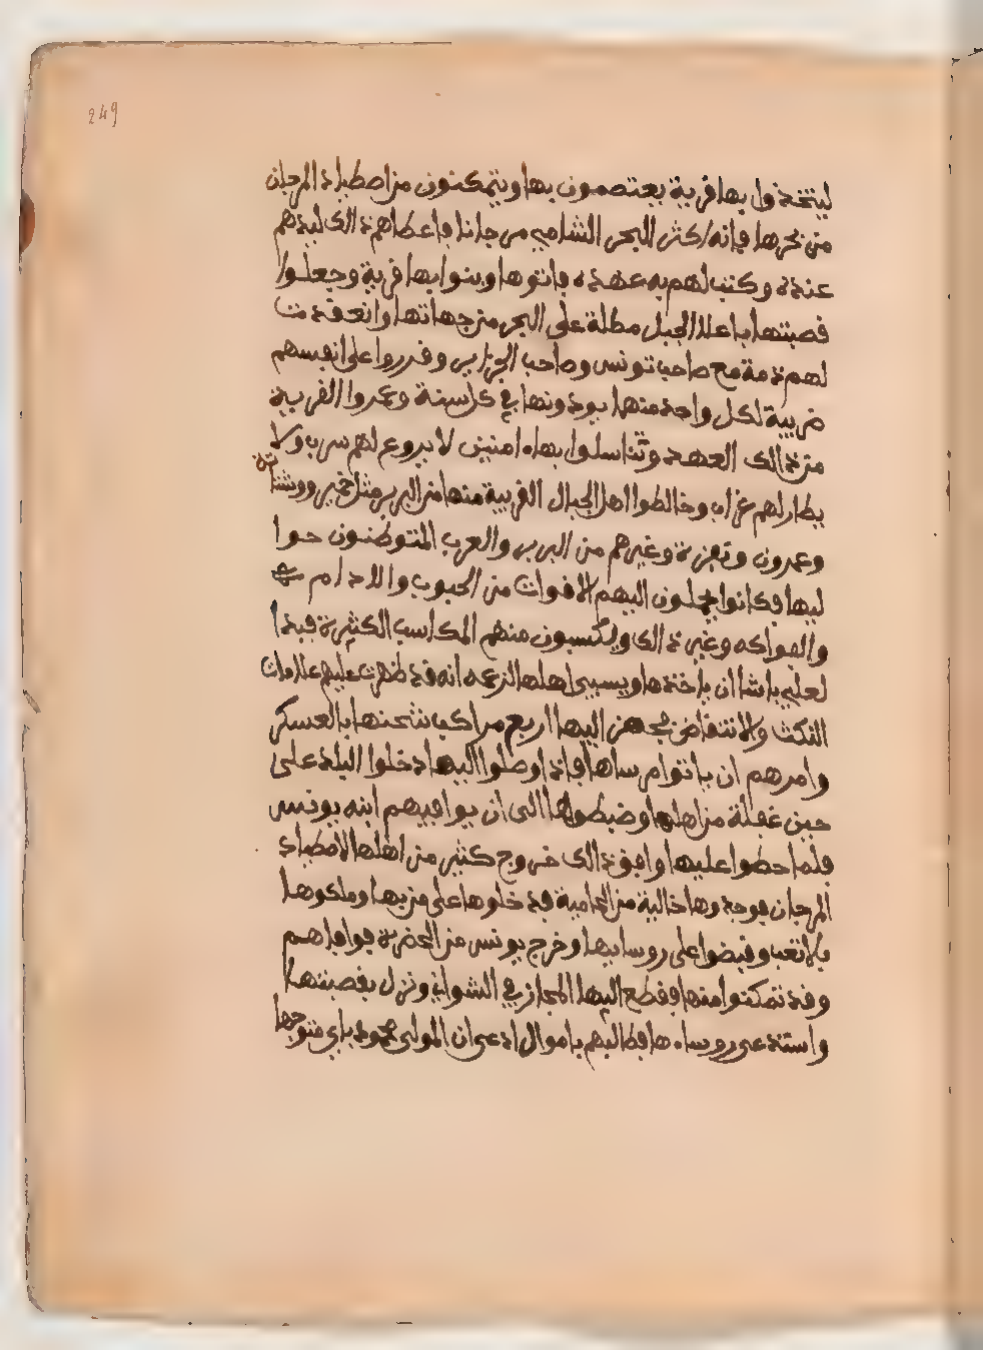 249
ليتخذوا بها قرية يعتصمون بها ويتمكنون من اصطياد المرجان
من بحرها فإنه اكثر البحر الشامي مرجانا فاعطاهم ذالك ليدهم
عنده وكتب لهم به عهده فاتوها وبنوا بها قرية وجعلوا
قصبتها باعلا الجبل مطلة على البحر من جهاتها وانعقدت
لهم ذمة مع صاحب تونس وصاحب الجزاير وقرروا على انفسهم
ضريبة لكل واحد منهما يودونها في كل سنة وعمروا القرية
من ذالك العهد وتناسلوا بها امنين لا يروع لهم سرب ولا
يطار لهم غراب وخالطوا اهل الجبال القريبة منها من البربر مثل خمير ووشتاتة
وعمدون ونفزة وغيرهم من البربر والعرب المتوطنون حوا
ليها فكانوا يجلون اليهم الاقوات من الحبوب والادام
والفواكه وغير ذالك ويكسبون منهم المكاسب الكثيرة فبدا
لعلي باشا ان ياخذها ويسبي اهلها لزعمه انه قد ظهرت عليهم علامات
النكث والانتقاض فجهز اليها اربع مراكب شحنها بالعسكر
وامرهم ان ياتوا مرساها فاذا وصلوا اليها دخلوا البلد على
حين غفلة من اهلها وضبطوها الى ان يوافيهم ابنه يونس
فلما حطوا عليها وافق ذالك خروج كثير من اهلها لاصطياد
المرجان فوجدوها خالية من الحامية فدخلوها على من بها وملكوها
بلا تعب وقبضوا على روسايها وخرج يونس من الحضرة فوافاهم
وقد تمكنوا منها فقطع اليها المجاز في الشواني ونزل بقصبتها
واستدعى روساءها فطالبهم باموال ادعى ان المولى محمود باي متوجها